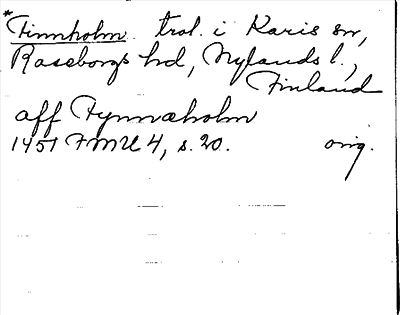 *Finnholm trol. i Karis sn,
Raseborgs hd, Nylands l.,
Finland
aff Fynnaholm
1451 FMU 4, s. 20. orig.